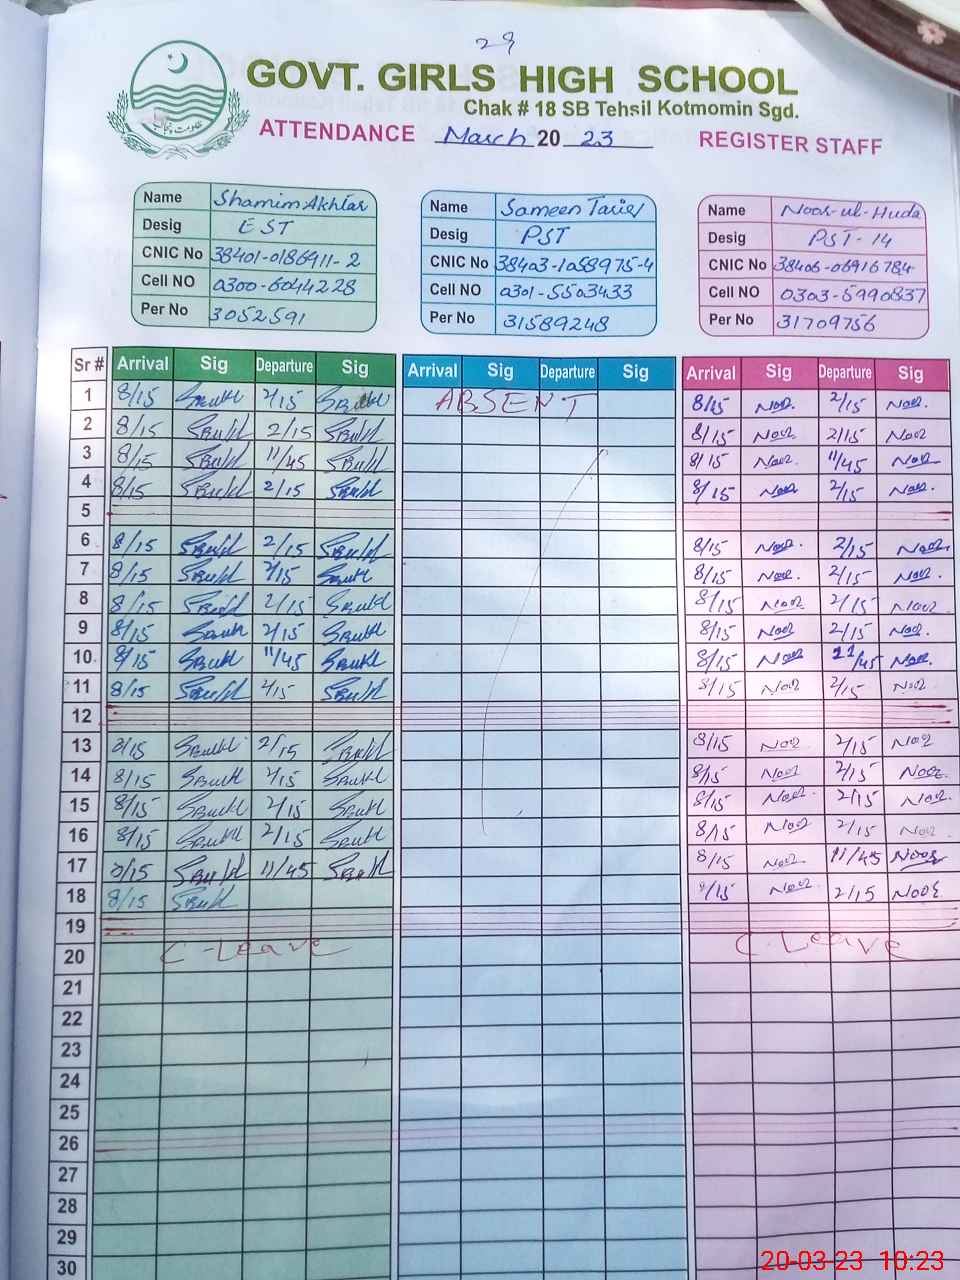 29
GOVT. GIRLS HIGH SCHOOL
Chak # 18 SB Tehsil Kotmomin Sgd.
ATTENDANCE March 20 23 REGISTER STAFF
حکومت پنجاب
Name Shamim Akhtar
Desig EST
CNIC No 38401-0186911-2
Cell NO 0300-6044228
Per No 3052591
Name Sameen
Desig PST
CNIC No 38403-1058975-4
Cell NO 0301-5503433
Per No 31589248
Name Noor-ul-Huda
Desig PST-14
CNIC No 38406-06916784
Cell NO 0303-5990837
Per No 31709756
Sr # Arrival Sig Departure Sig Arrival Sig Departure Sig Arrival Sig Departure Sig
1 8/15 2/15 ABSENT 8/15 Noor. 2/15 Noor.
2 8/15 2/15 8/15 Noor 2/15 Noor
3 8/15 11/45 8/15 Noor. 11/45 Noor.
4 8/15 2/15 8/15 Noor 2/15 Noor.
5
6 8/15 2/15 8/15 Noor. 2/15 Noor.
7 8/15 2/15 8/15 Noor. 2/15 Noor.
8 8/15 2/15 8/15 Noor 2/15 Noor.
9 8/15 2/15 8/15 Noor 2/15 Noor.
10 8/15 11/45 8/15 Noor 11/45 Noor.
11 8/15 2/15 8/15 Noor 2/15 Noor
12
13 8/15 2/15 8/15 Noor 2/15 Noor
14 8/15 2/15 8/15 Noor 2/15 Noor.
15 8/15 2/15 8/15 Noor. 2/15 Noor.
16 8/15 2/15 8/15 Noor 2/15 Noor
17 8/15 11/45 8/15 Noor 11/45 Noor
18 8/15 8/15 Noor 2/15 Noor
19
20 C-Leave C-Leave
21
22
23
24
25
26
27
28
29
30
20-03-23 10:23